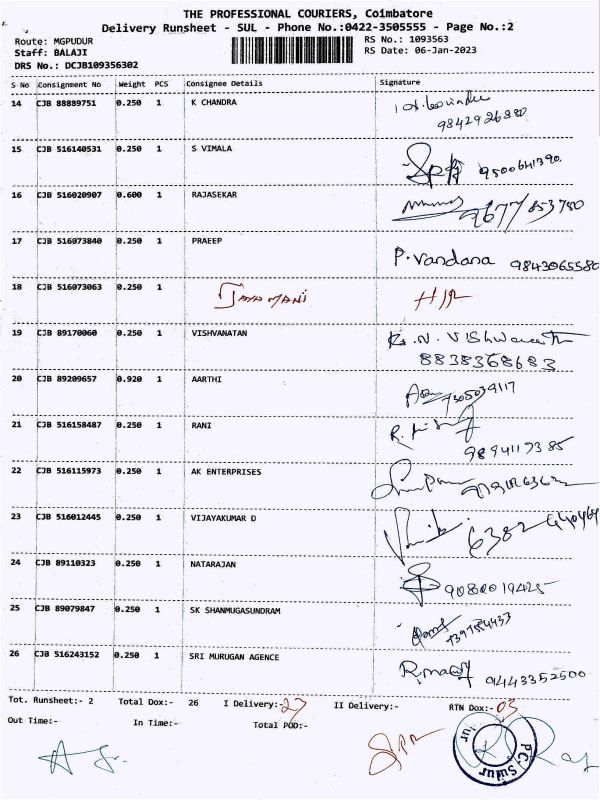 THE PROFESSIONAL COURIERS, Coimbatore
Delivery Runsheet - SUL - Phone No.:0422-3505555 - Page No.:2
Route: MGPUDUR RS No.: 1093563
Staff: BALAJI RS Date: 06-Jan-2023
DRS No.: DCJB109356302
S No Consignment No Weight PCS Consignee Details Signature
14 CJB 88889751 0.250 1 K CHANDRA
9842926880
15 CJB 516140531 0.250 1 S VIMALA
9500641390
16 CJB 516020907 0.600 1 RAJASEKAR
9677853780
17 CJB 516073840 0.250 1 PRAEEP
P. Vandana 9843065580
18 CJB 516073063 0.250 1 JAYAMANI
19 CJB 89170060 0.250 1 VISHVANATAN
8838368683
20 CJB 89209657 0.920 1 AARTHI
7305039117
21 CJB 516158487 0.250 1 RANI
9894117385
22 CJB 516115973 0.250 1 AK ENTERPRISES
23 CJB 516012445 0.250 1 VIJAYAKUMAR D
6382
24 CJB 89110323 0.250 1 NATARAJAN
25 CJB 89079847 0.250 1 SK SHANMUGASUNDRAM
26 CJB 516243152 0.250 1 SRI MURUGAN AGENCE
9443352500
Tot. Runsheet:- 2 Total Dox:- 26 I Delivery:-23 II Delivery:- RTN Dox:-03
Out Time:- In Time:- Total POD:-
P.C. Sulur